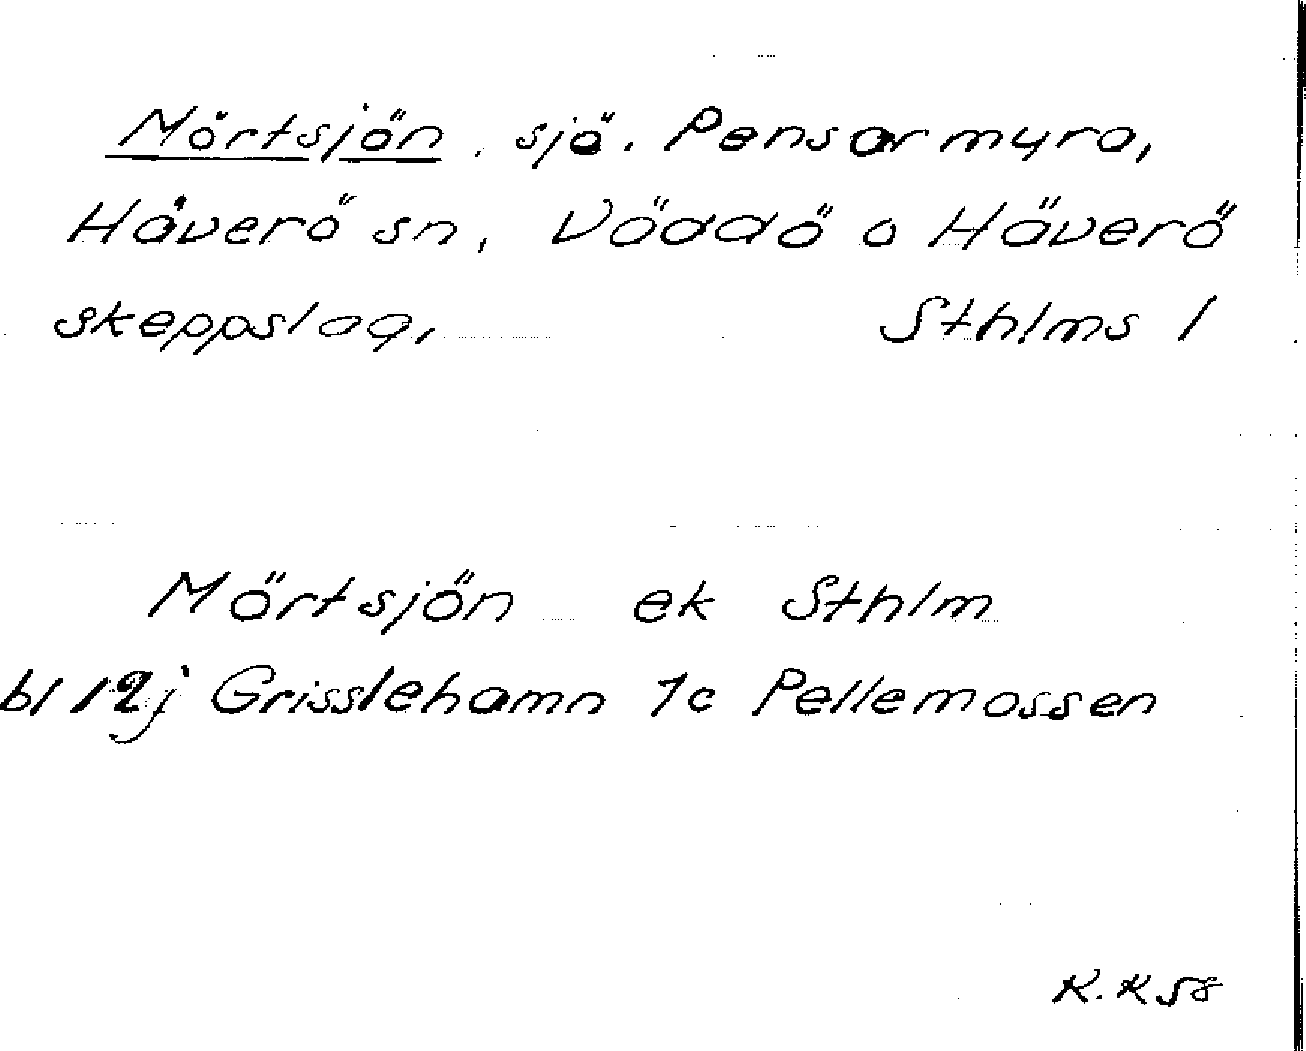 Mörtsjön, sjö. Pensarmyra,
Häverö sn, Väddö o Häverö
skeppslag, Sthlms l
Mörtsjön ek Sthlm
bl 12j Grisslehamn 7c Pellemossen
K.K 58